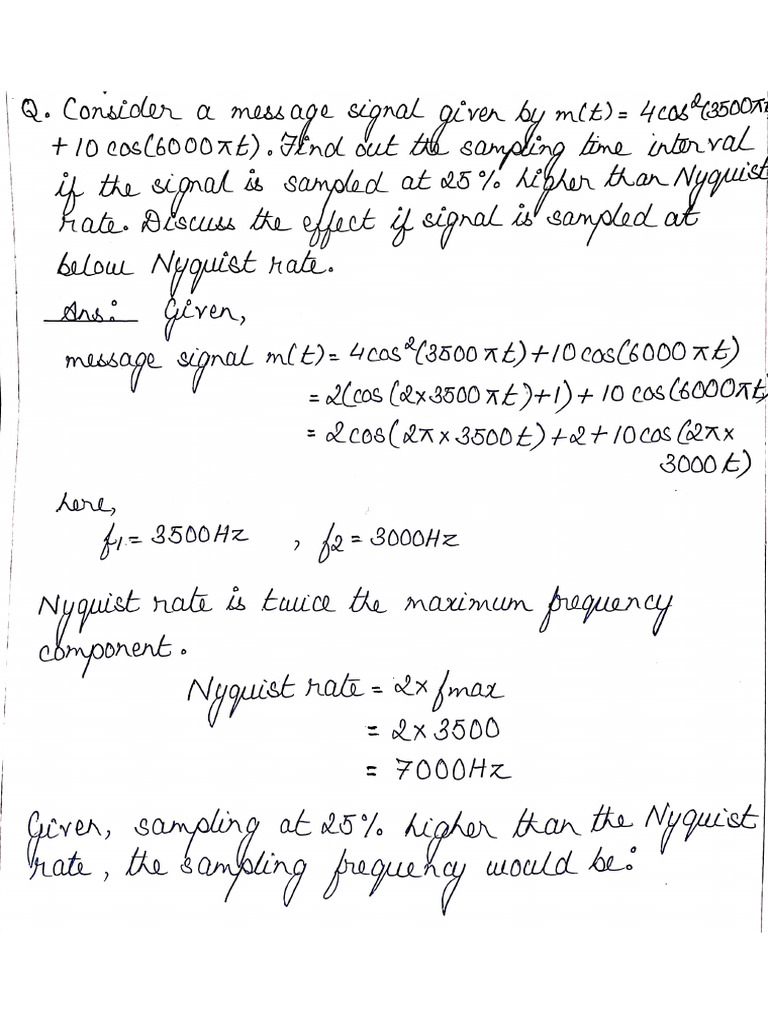 Q. Consider a message signal given by m(t) = 4cos²(3500πt
+ 10 cos(6000πt). Find out the sampling time interval
if the signal is sampled at 25% higher than Nyquist
rate. Discuss the effect if signal is sampled at
below Nyquist rate.
Ans: Given,
message signal m(t) = 4cos²(3500πt) + 10cos(6000πt)
= 2(cos(2×3500πt)+1) + 10 cos(6000πt)
= 2cos(2π×3500t)+2+10cos(2π×
3000t)
here,
f₁ = 3500Hz , f₂ = 3000Hz
Nyquist rate is twice the maximum frequency
component.
Nyquist rate = 2× fmax
= 2×3500
= 7000Hz
Given, sampling at 25% higher than the Nyquist
rate, the sampling frequency would be: